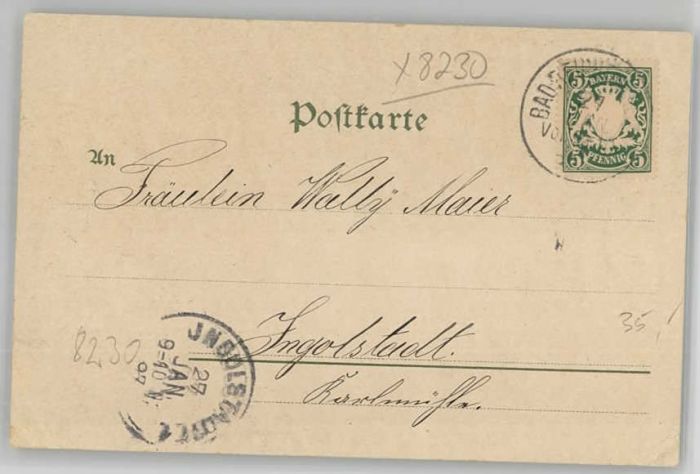 x 8230
BAD
5 BAYERN 5
5 PFENNIG 5
Postkarte
An
Fräulein Wally Maier
35
Ingolstadt.
Karlmühle.
8230
JNGOLSTADT
27
JAN
9-10